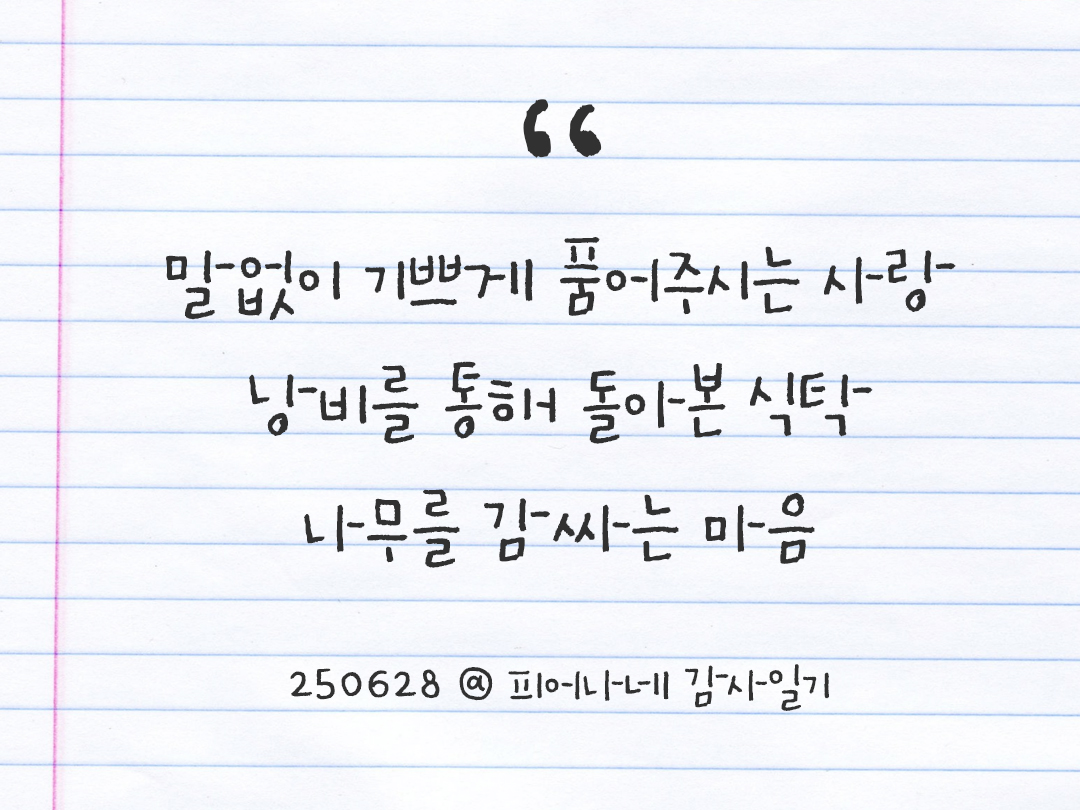 “
말없이 기쁘게 품어주시는 사랑
낭비를 통해 돌아본 식탁
나무를 감싸는 마음
250628 @ 피어나네 감사일기